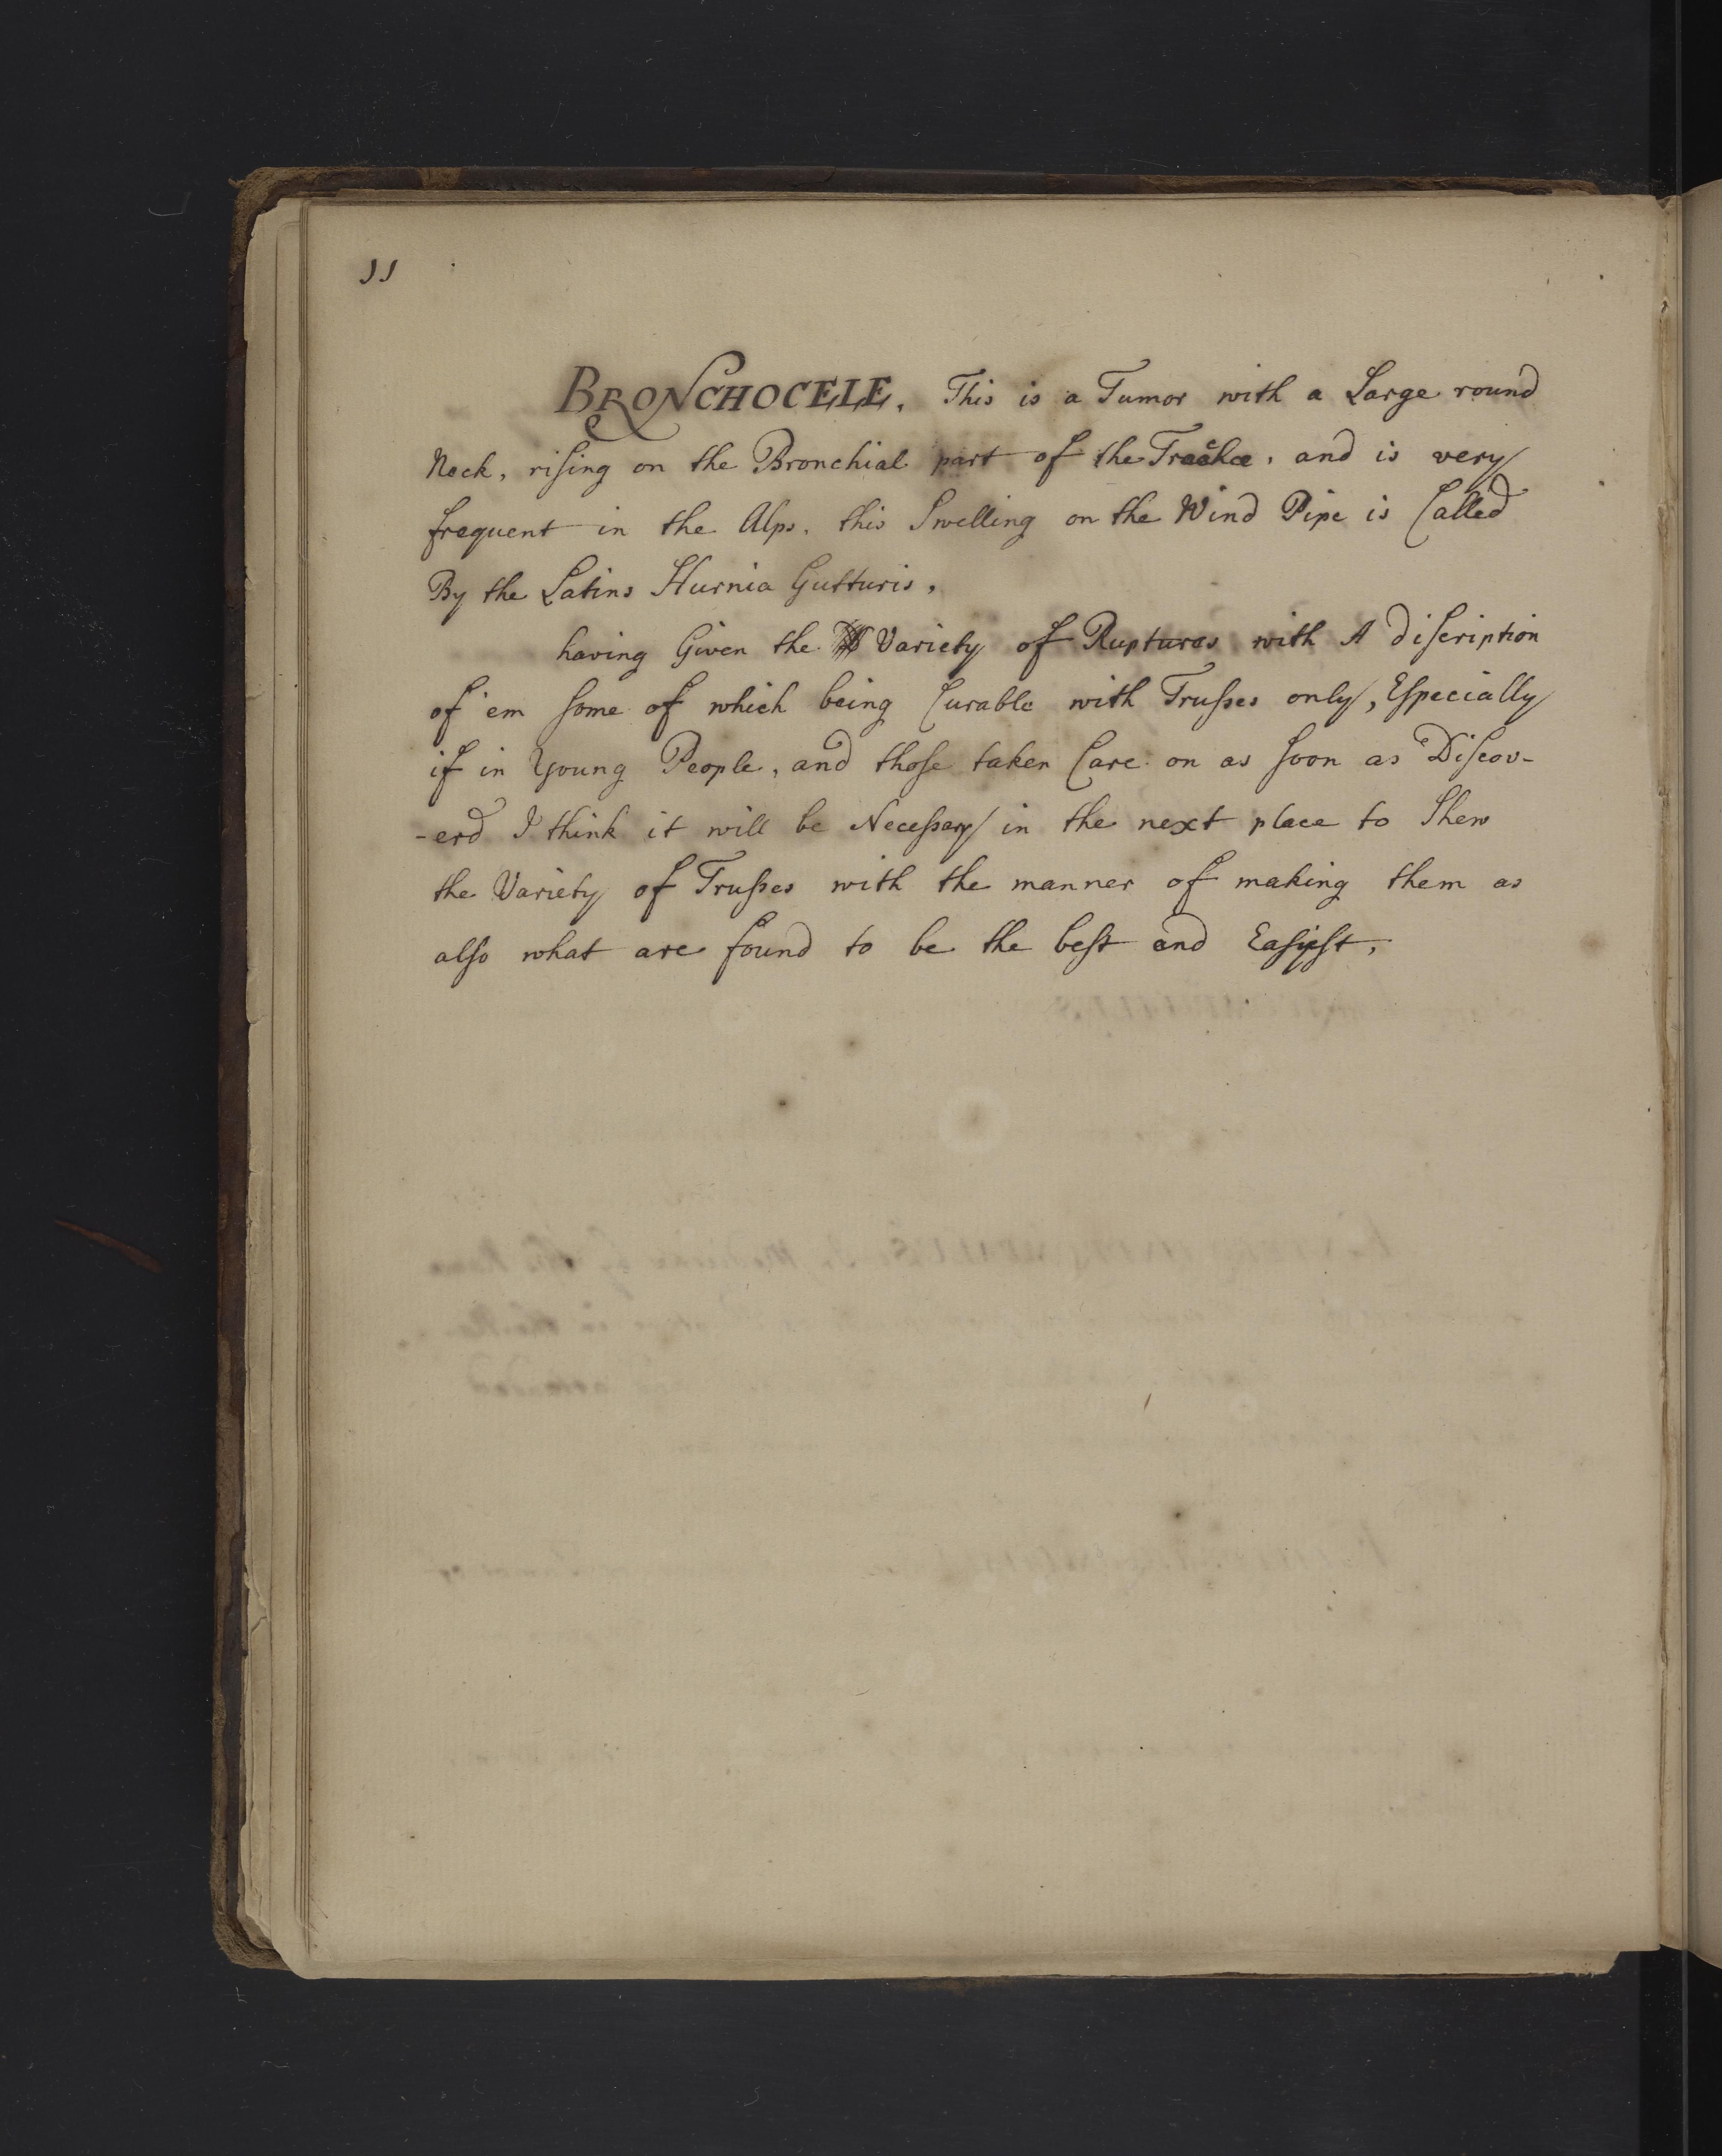 11
BRONCHOCELE, This is a Tumor with a Large round
Neck, riſing on the Bronchial part of the Trachæ, and is very
frequent in the Alps, this Swelling on the Wind Pipe is Called
By the Latins Hurnia Gutturis,
having Given the Variety of Ruptures with A diſcription
of 'em ſome of which being Curable with Truſses only, Eſpecially
if in Young People, and thoſe taken Care on as ſoon as Diſcov-
-erd I think it will be Neceſsary in the next place to Shew
the Variety of Truſses with the manner of making them as
alſo what are found to be the beſt and Easyeſt,